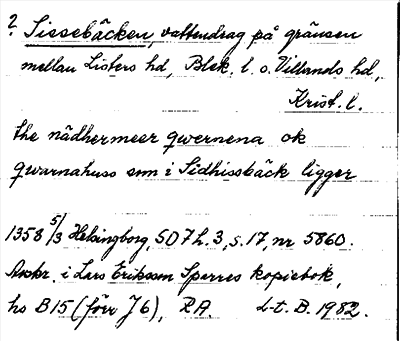 ? Sissebäcken, vattendrag på gränsen
mellan Listers hd, Blek. l. o. Villands hd,
Krist. l.
the nädhermeer qwernena ok
qwarnahuss som i Sidhissbäck ligger
1358 5/3 Helsingborg, SD 7 h. 3, s. 17, nr 5860.
Avskr. i Lars Eriksson Sparres kopiebok,
hs B 15 (förr J 6), RA. L-t. B. 1982.